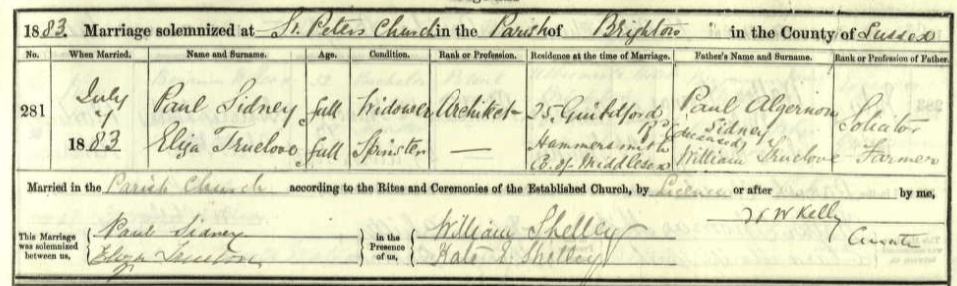 1883. Marriage solemnized at St. Peters Church in the Parish of Brighton in the County of Sussex
No. When Married. Name and Surname. Age. Condition. Rank or Profession. Residence at the time of Marriage. Father's Name and Surname. Rank or Profession of Father.
281 July 1883
Paul Sidney full Widower Architect 25. Guildford Paul Algernon Sidney (deceased) Solicitor
Eliza Truelove full Spinster — Hammersmith Co. of Middlesex William Truelove Farmer
Married in the Parish Church according to the Rites and Ceremonies of the Established Church, by Licence or after by me,
W Kelly
Curate
This Marriage was solemnized between us, Paul Sidney in the Presence of us, William Shelley
Eliza Truelove Kate E. Shelley